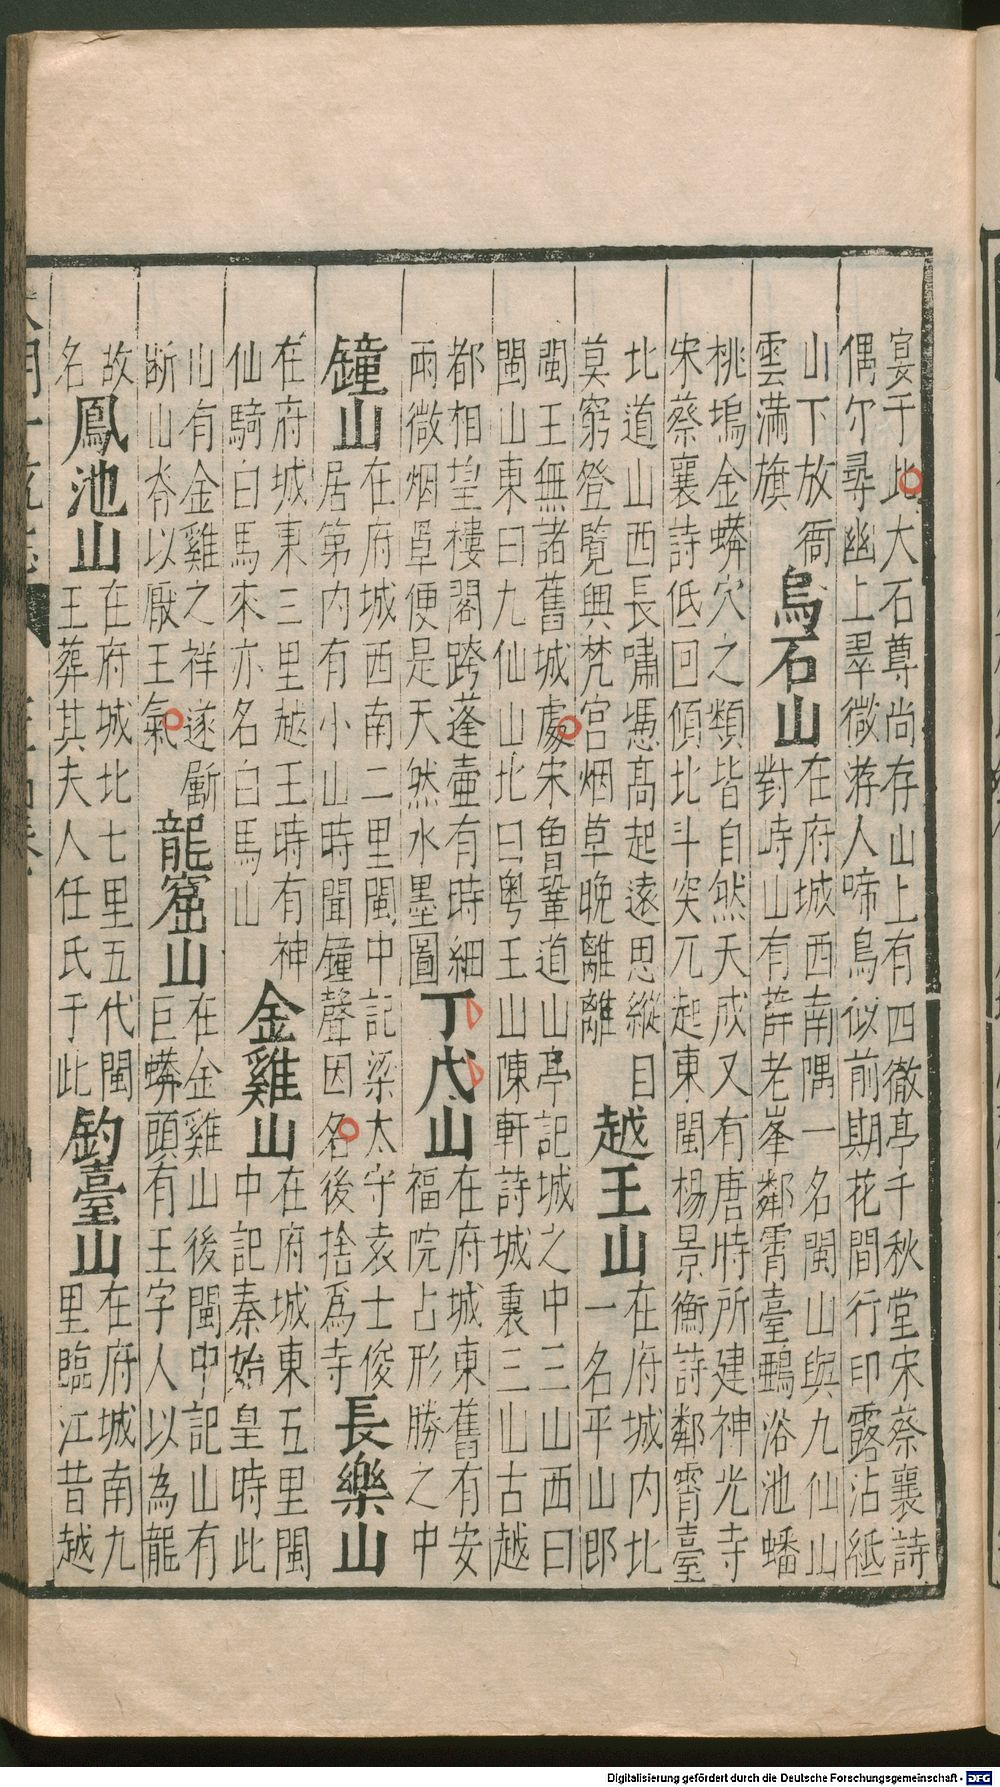 宴于此大石尊尚存山上有四徹亭千秋堂宋蔡襄詩
偶尔尋幽上翠微游人啼鳥似前期花間行印露沾紙
山下放衙
雲滿旗
烏石山
在府城西南隅一名閩山與九仙山
對峙山有薛老峯鄰霄臺鸜浴池蟠
桃塢金蟒穴之類皆自然天成又有唐時所建神光寺
宋蔡襄詩低回傾北斗突兀起東閩楊景衡詩鄰霄臺
北道山西長嘯慿高起遠思縱目
莫窮登覽興梵宮烟草晚離離
越王山
在府城内北
一名平山郎
閩王無諸舊城處宋曾鞏道山亭記城之中三山西曰
閩山東曰九仙山北曰粤王山陳軒詩城裏三山古越
都相望樓閣跨蓬壷有時細
雨微烟罩便是天然水墨圖
丁戊山
在府城東舊有安
福院占形勝之中
鐘山
在府城西南二里閩中記梁太守袁士俊
居第内有小山時聞鐘聲因名後捨爲寺
長樂山
在府城東三里越王時有神
仙騎白馬來亦名白馬山
金雞山
在府城東五里閩
中記秦始皇時此
山有金雞之祥遂斸
斷山脊以厭王氣
龍窟山
在金雞山後閩中記山有
巨蟒頭有王字人以為龍
故
名
鳳池山
在府城北七里五代閩
王葬其夫人任氏于此
釣臺山
在府城南九
里臨江昔越
Digitalisierung gefördert durch die Deutsche Forschungsgemeinschaft - DFG